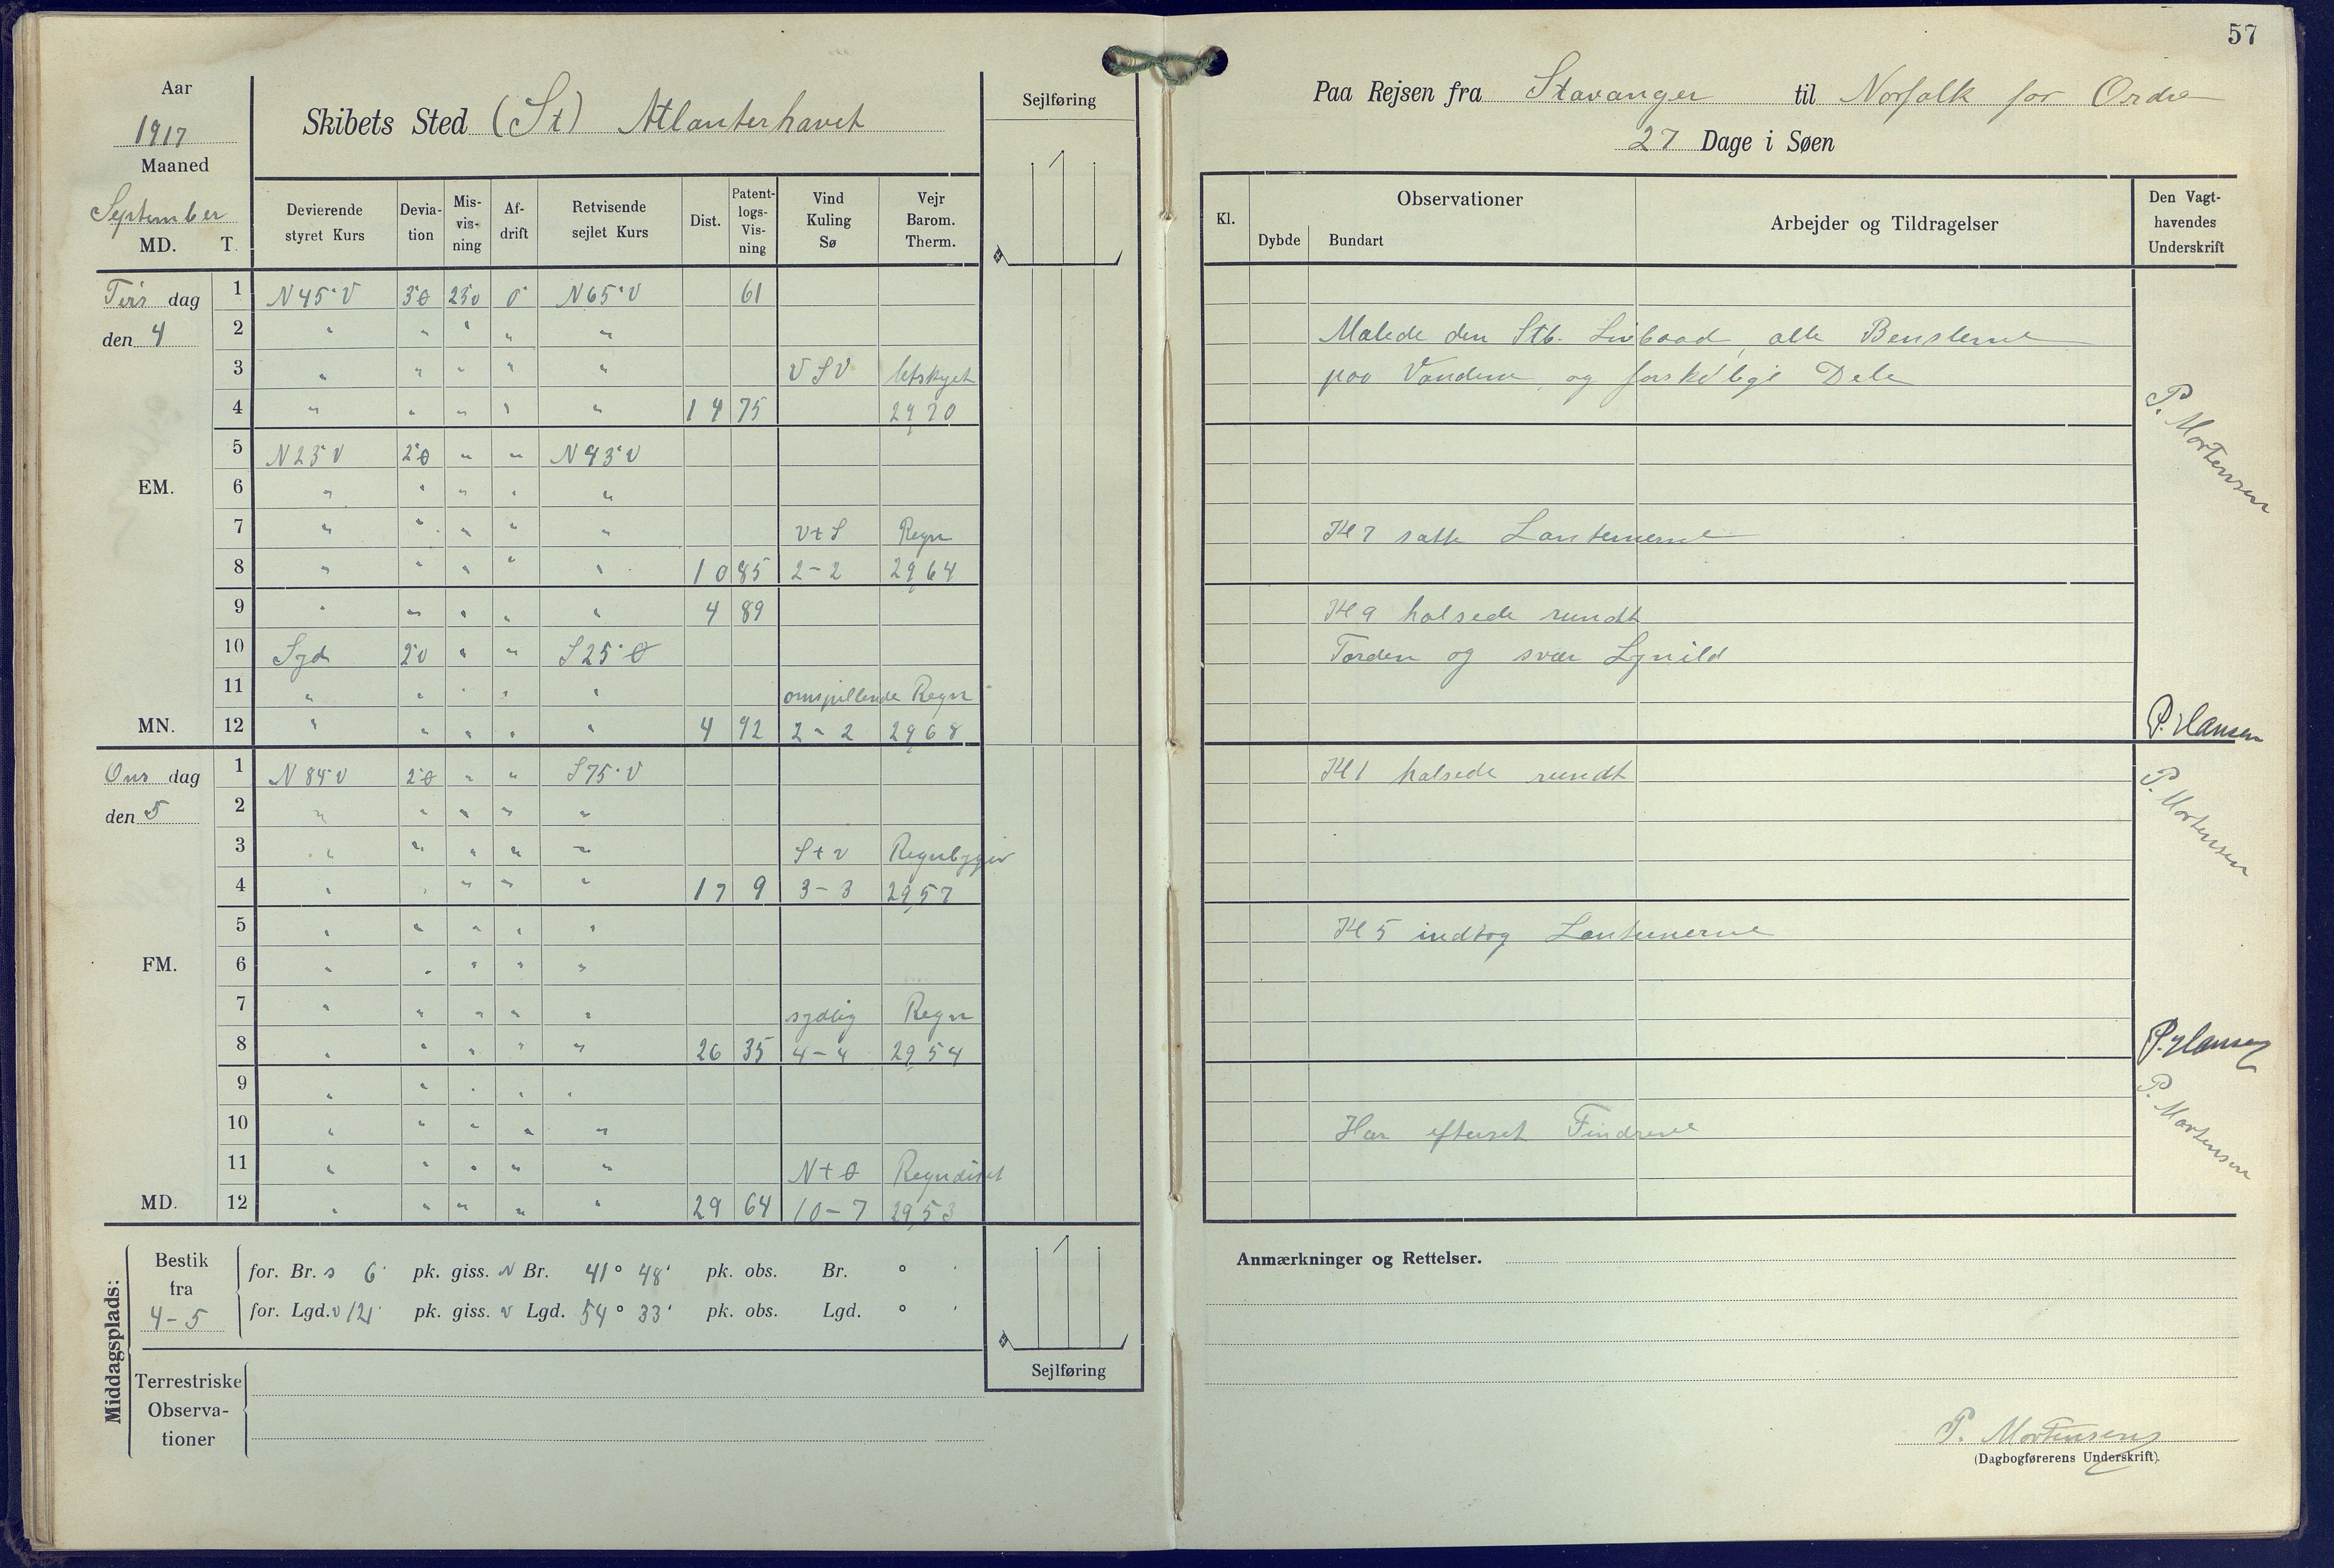 57
Aar
1917
Maaned
September
MD. T.
Skibets Sted (St) Atlanterhavet
Sejlføring
Devierende styret Kurs
Devia-tion
Mis-vis-ning
Af-drift
Retvisende sejlet Kurs
Dist.
Patent-logs-Vis-ning
Vind Kuling Sø
Vejr Barom. Therm.
Tirs dag
den 4
1 N45°V 3°Ø 23V 0° N65°V 61
2 " " " " "
3 " " " " " VSV letskyet
4 " " " " " 14 75 29,70
5 N23°V 2°Ø " " N43°V
EM. 6 " " " " "
7 " " " " " VtS Regn
8 " " " " " 10 85 2-2 29,64
9 " " " " " 4 89
10 Syd 2°V " " S25°Ø
11 " " " " " omspillende Regn
MN. 12 " " " " " 4 92 2-2 29,68
Ons dag
den 5
1 N84°V 2°Ø " " S75°V
2 " " " " "
3 " " " " " StV Regnbyger
4 " " " " " 17 9 3-3 29,57
5 " " " " "
FM. 6 " " " " "
7 " " " " " sydlig Regn
8 " " " " " 26 35 4-4 29,54
9 " " " " "
10 " " " " "
11 " " " " " NtØ Regndiset
MD. 12 " " " " " 29 64 10-7 29,53
Middagsplads:
Bestik fra 4-5
for. Br. S 6' pk. giss. N Br. 41° 48' pk. obs. Br. ° '
for. Lgd. V 121' pk. giss. V Lgd. 54° 33' pk. obs. Lgd. ° '
Sejlføring
Terrestriske
Observa-
tioner
Paa Rejsen fra Stavanger til Norfolk for Ordre
27 Dage i Søen
Kl.
Observationer
Dybde Bundart
Arbejder og Tildragelser
Den Vagt-
havendes
Underskrift
Malede den Stb. Livbaad, alle Benslerne
paa Vanderne, og forskelige Dele
P. Mortensen
Kl 7 satte Lanternerne
Kl 9 halsede rundt
Torden og svær Lynild
P. Hansen
Kl 1 halsede rundt
P. Mortensen
Kl 5 indtog Lanternerne
P. Hansen
Har efterset Findrene
P. Mortensen
Anmærkninger og Rettelser.
P. Mortensen
(Dagbogførerens Underskrift).